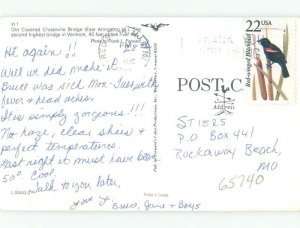 VI 1
Old Covered Chiselville Bridge (East Arlington, Vt.) The
second highest bridge in Vermont, 40 feet above river bed.
Photo by Frank L. Forward
Hi again!!
Well we did make it.
Bruce was sick Mon-Tues with
fever & head aches.
It is simply gorgeous!!!
No haze, clear skies &
perfect temperatures.
Last night it must have been
50° Cool.
Talk to you later,
Love Y
Bruce, Jane & Boys
POST C
Address
22 USA
Red-winged Blackbird
ST1825
P.O BOX 441
Rockaway Beach,
MO
65740